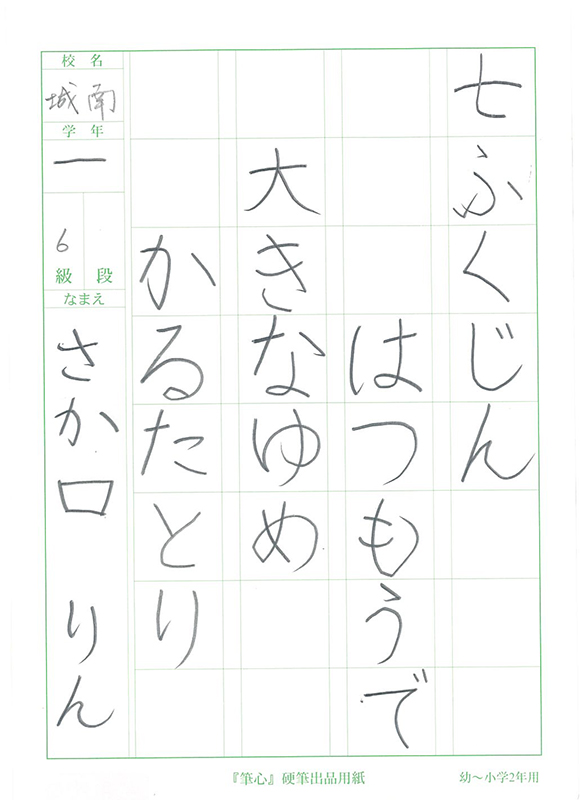 七ふくじん
はつもうで
大きなゆめ
かるたとり
校名
城南
学年
一
6
級 段
なまえ
さか口 りん
『筆心』硬筆出品用紙
幼〜小学2年用